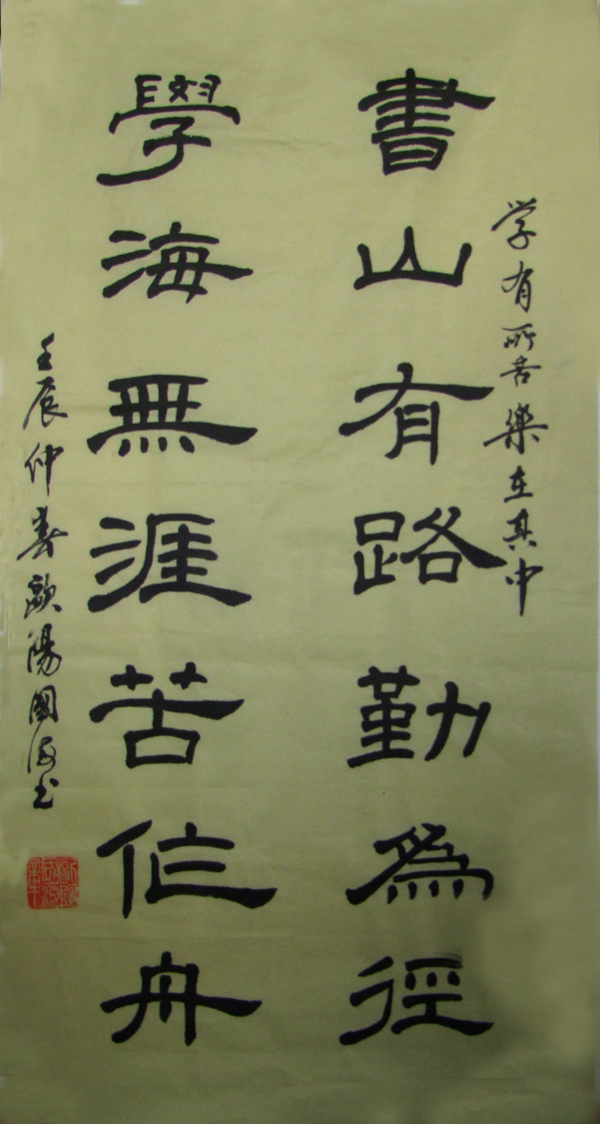 学有所苦樂在其中
書山有路勤為徑
學海無涯苦作舟
壬辰仲春歐陽國海书